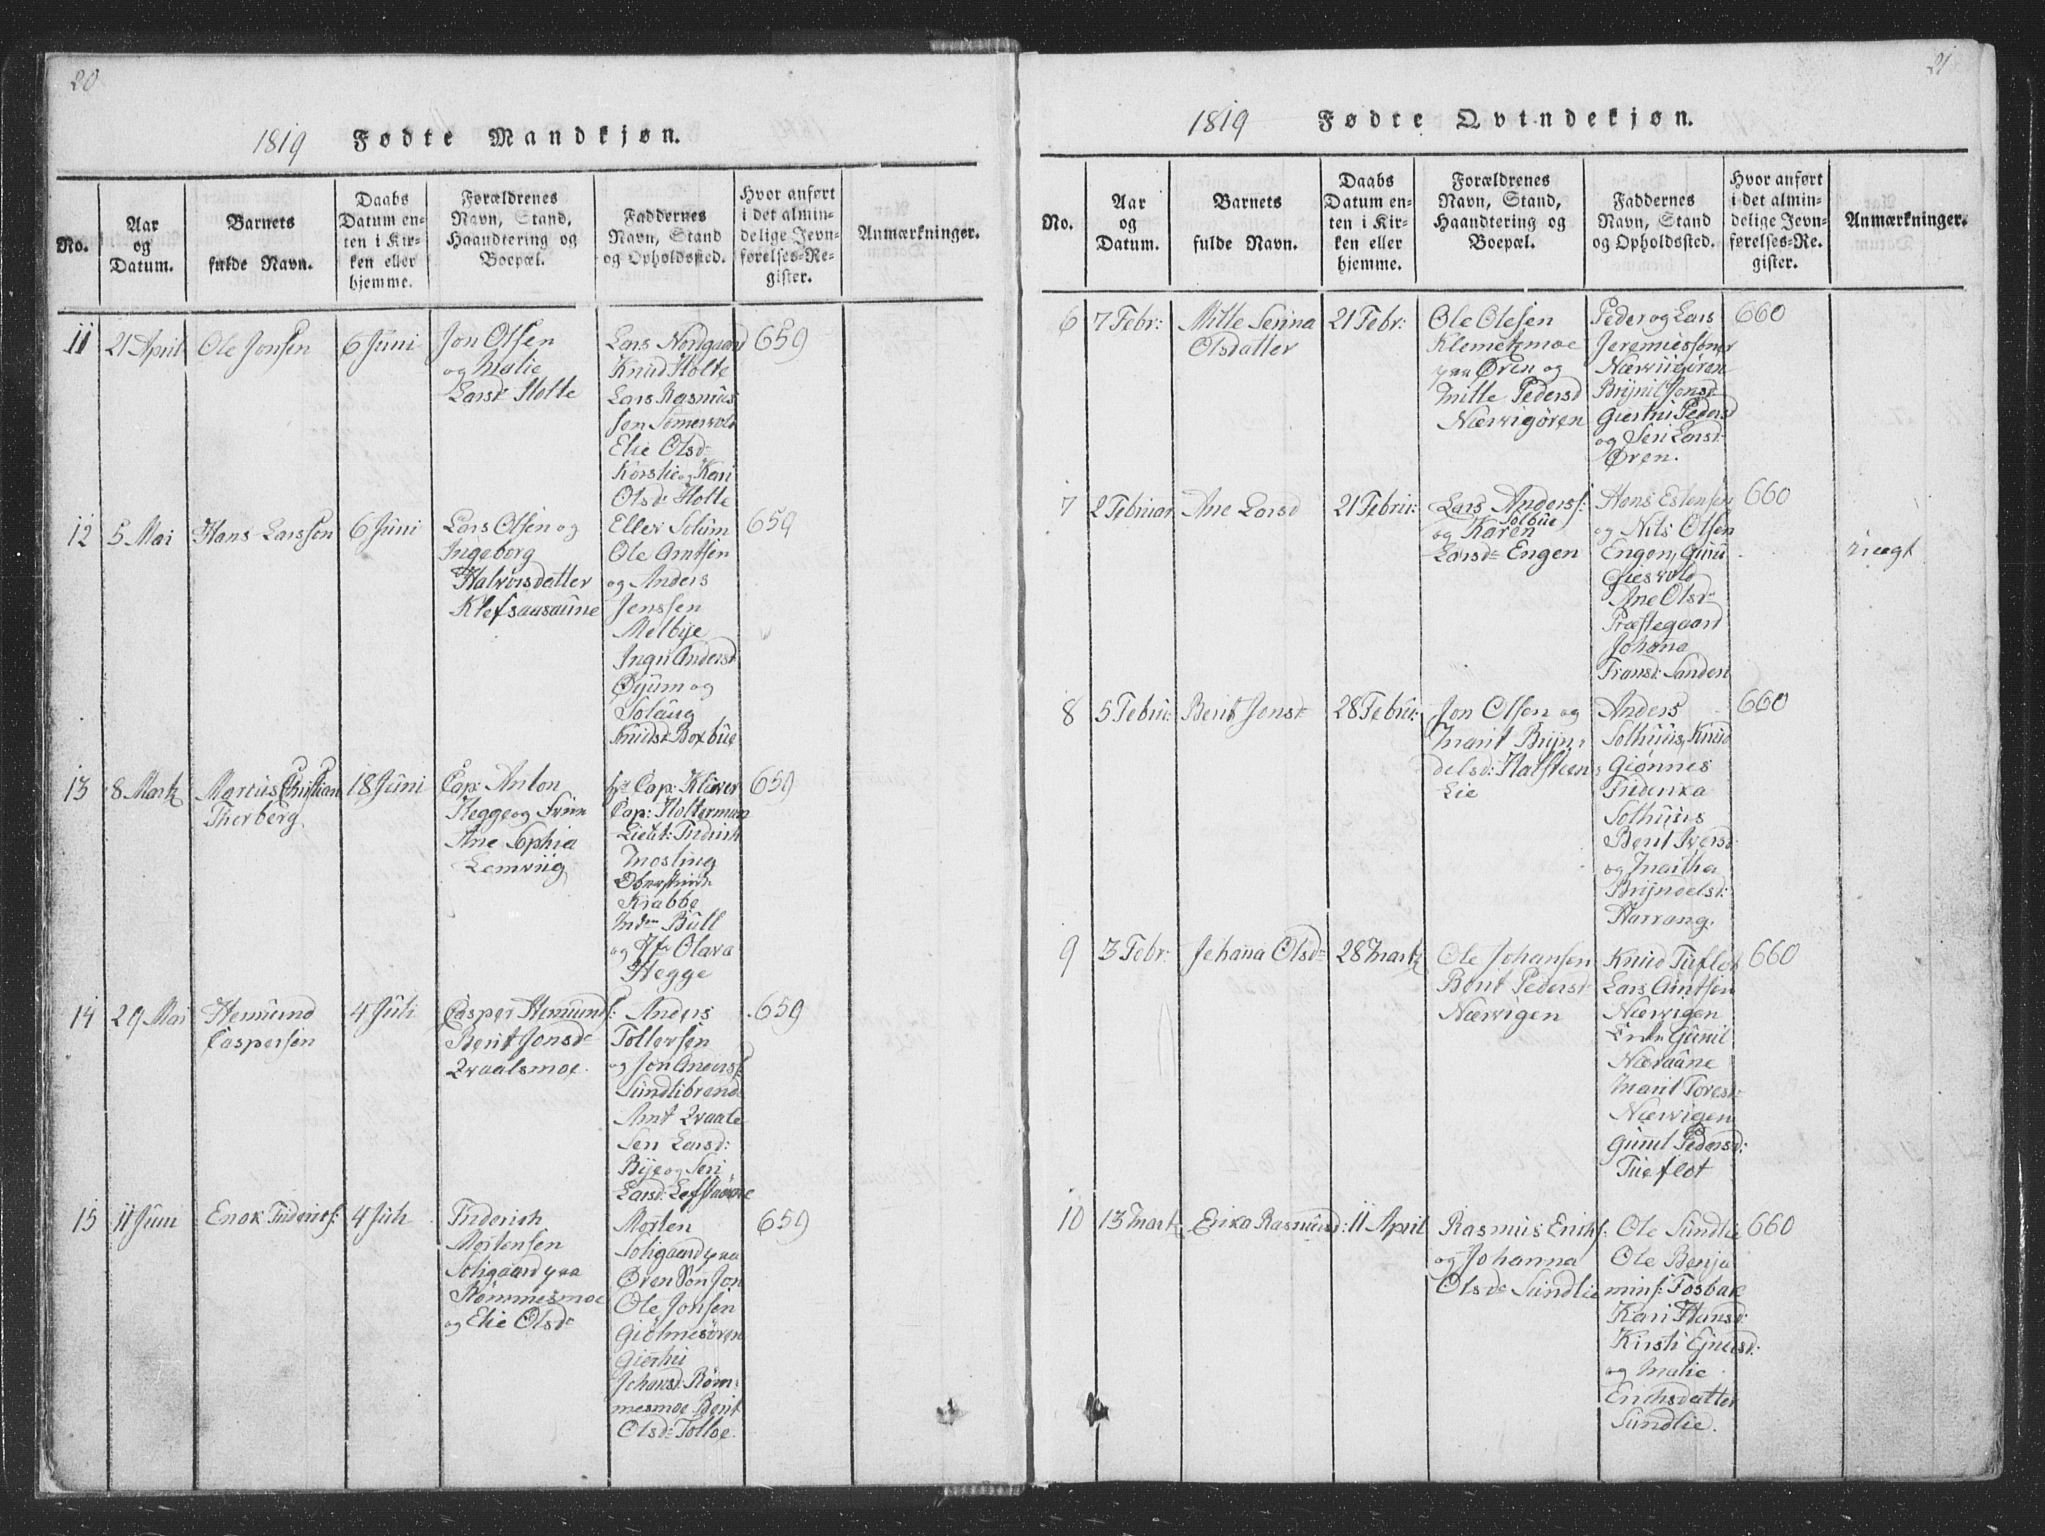 20
1819 Fødte Mandkjøn.
No.
Aar
og
Datum.
Barnets
fulde Navn.
Daabs
Datum en-
ten i Kir-
ken eller
hjemme.
Forældrenes
Navn, Stand,
Haandtering og
Boepæl.
Faddernes
Navn, Stand
og Opholdssted.
Hvor anført
i det almin-
delige Jevn-
førelses-Re-
gister.
Anmærkninger.
11
21 April
Ole Jonsen
6 Juni
Jon Olsen
og Malie
Larsd: Holte
Lars Nordgaard
Knud Holte
Lars Rasmus
sen Somervold
Elie Olsd:
Korslie og Kari
Olsd: Holte
659
12
5 Mai
Hans Larssen
6 Juni
Lars Olsen og
Ingeborg
Halvorsdatter
Klefsaasaune
Eller Solum
Ole Arntsen
og Anders
Jenssen
Melbye
Ingri Andersd
Øyum og
Solaug
Knudsd: Boxbue
659
13
8 Martz
Marius Christian
Therberg
18 Juni
Cap: Anton
Hegge og Frue
Ane Sophia
Lemvig
Hr Cap: Klüver
Cap: Holterman
Lieut: Fridrich
Mosling
Krabbe
Bull
og Jfr Olava
Hegge
659
14
29 Mai
Hemund
Caspersen
4 Juli
Casper Hemunds:
Berit Jonsd:
Qvaalsmoe
Anders
Tollevsen
og Jon Anders:
Sundlibrend
Arnt Qvaale
Seri Larsd:
Bye og Seri
Larsd: Lefstaune
659
15
11 Juni
Enok Friderits:
4 Juli
Friderich
Mortensen
Soligaard paa
Rømmesmoe
og Elie Olsd:
Morten
Soligaard paa
Øren Søn Jon
Ole Jonsen
Giölmesøren
Giertru
Johansd: Røm:
mesmoe Berit
Olsd: Tolloe.
659
21
1819 Fødte Qvindekjøn.
No.
Aar
og
Datum.
Barnets
fulde Navn.
Daabs
Datum en-
ten i Kir-
ken eller
hjemme.
Forældrenes
Navn, Stand,
Haandtering og
Boepæl.
Faddernes
Navn, Stand
og Opholdssted.
Hvor anført
i det almin-
delige Jevn-
førelses-Re-
gister.
Anmærkninger.
6
7 Febr:
Mille Serina
Olsdatter
21 Febr:
Ole Olesen
Klemetzmoe
paa Øren og
Mille Pedersd
Nærvigøren
Peder og Lars
Jeremiessøner
Nærviigøren
Brynil Jonsd:
Giertru Pedersd
og Seri Larsd:
Øren.
660
7
2 Februar
Ane Larsd
21 Febru:
Lars Anders:
Solbue
og Karen
Larsd: Engen
Hans Estensen
og Nils Olsen
Engen, Guru
Giesvold
Ane Olsd:
Præstegaard
Johana
Fransd: Sanden
660
8
5 Febru:
Berit Jonsd:
28 Febru:
Jon Olsen og
Marit Bryn:
delsd: Halsteens
Lie
Anders
Solhuus, Knud
Giønnes
Friderika
Solhuus
Berit Iversd
og Martha
Bryndelsd:
Harrang.
660
9
3 Febr:
Jehana Olsd:
28 Martz
Ole Johansen
Berit Pedersd:
Nærvigen
Knud Tueflot
Lars Arntsen
Nærvigen
Erik Gunil
Næraune
Marit Toresd:
Nærvigen
Gunil Pedersd:
Tueflot
660
10
13 Mart
Erika Rasmusd:
11 April
Rasmus Erichs:
og Johanna
Olsd: Sundlie
Ole Sundlie
Ole Benja
mins: Fosbak
Kari Hansd:
Kirsti Ejnersd:
og Malie
Erichsdatter
Sundlie.
660